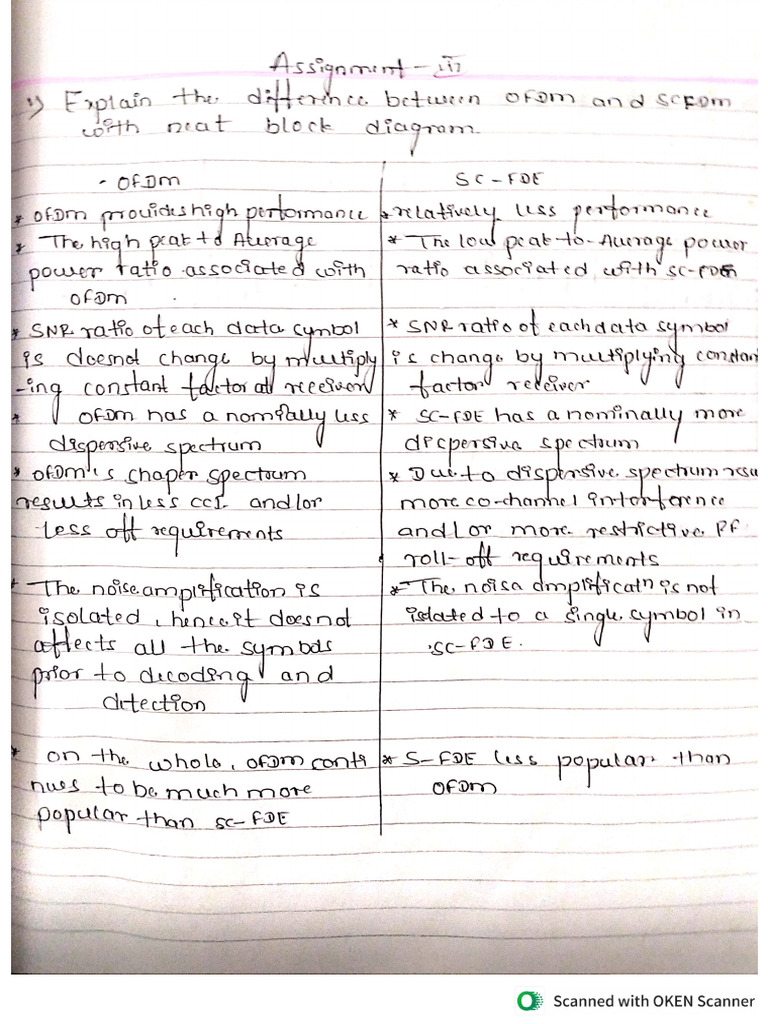 Assignment - III
1) Explain the difference between OFDM and SCFDM
with neat block diagram.
- OFDM
* OFDM provides high performance
* The high peat td Average
power ratio associated with
OFDM
* SNR ratio of each data cymbol
is doesnot change by multiply
-ing constant factor at receiver
* OFDM has a nominally less
dispersive spectrum
* OFDM is shaper spectrum
results in less CCI and/or
less off requirements
* The noise amplification is
isolated, hence it doesnot
affects all the symbols
prior to decoding and
detection
* on the whole, OFDM conti
nues to be much more
popular than SC-FDE
SC-FDE
* relatively less performance
* The low peat-to-Average power
ratio associated with SC-FDE
* SNR ratio of each data symbol
is change by multiplying constan
factor receiver
* SC-FDE has a nominally more
dispersive spectrum
* Due to dispersive spectrum resu
more co-channel interference
and/or more restrictive RF
roll-off requirements
* The noise amplificatn is not
isolated to a single symbol in
SC-FDE.
* S-FDE less popular than
OFDM
Scanned with OKEN Scanner